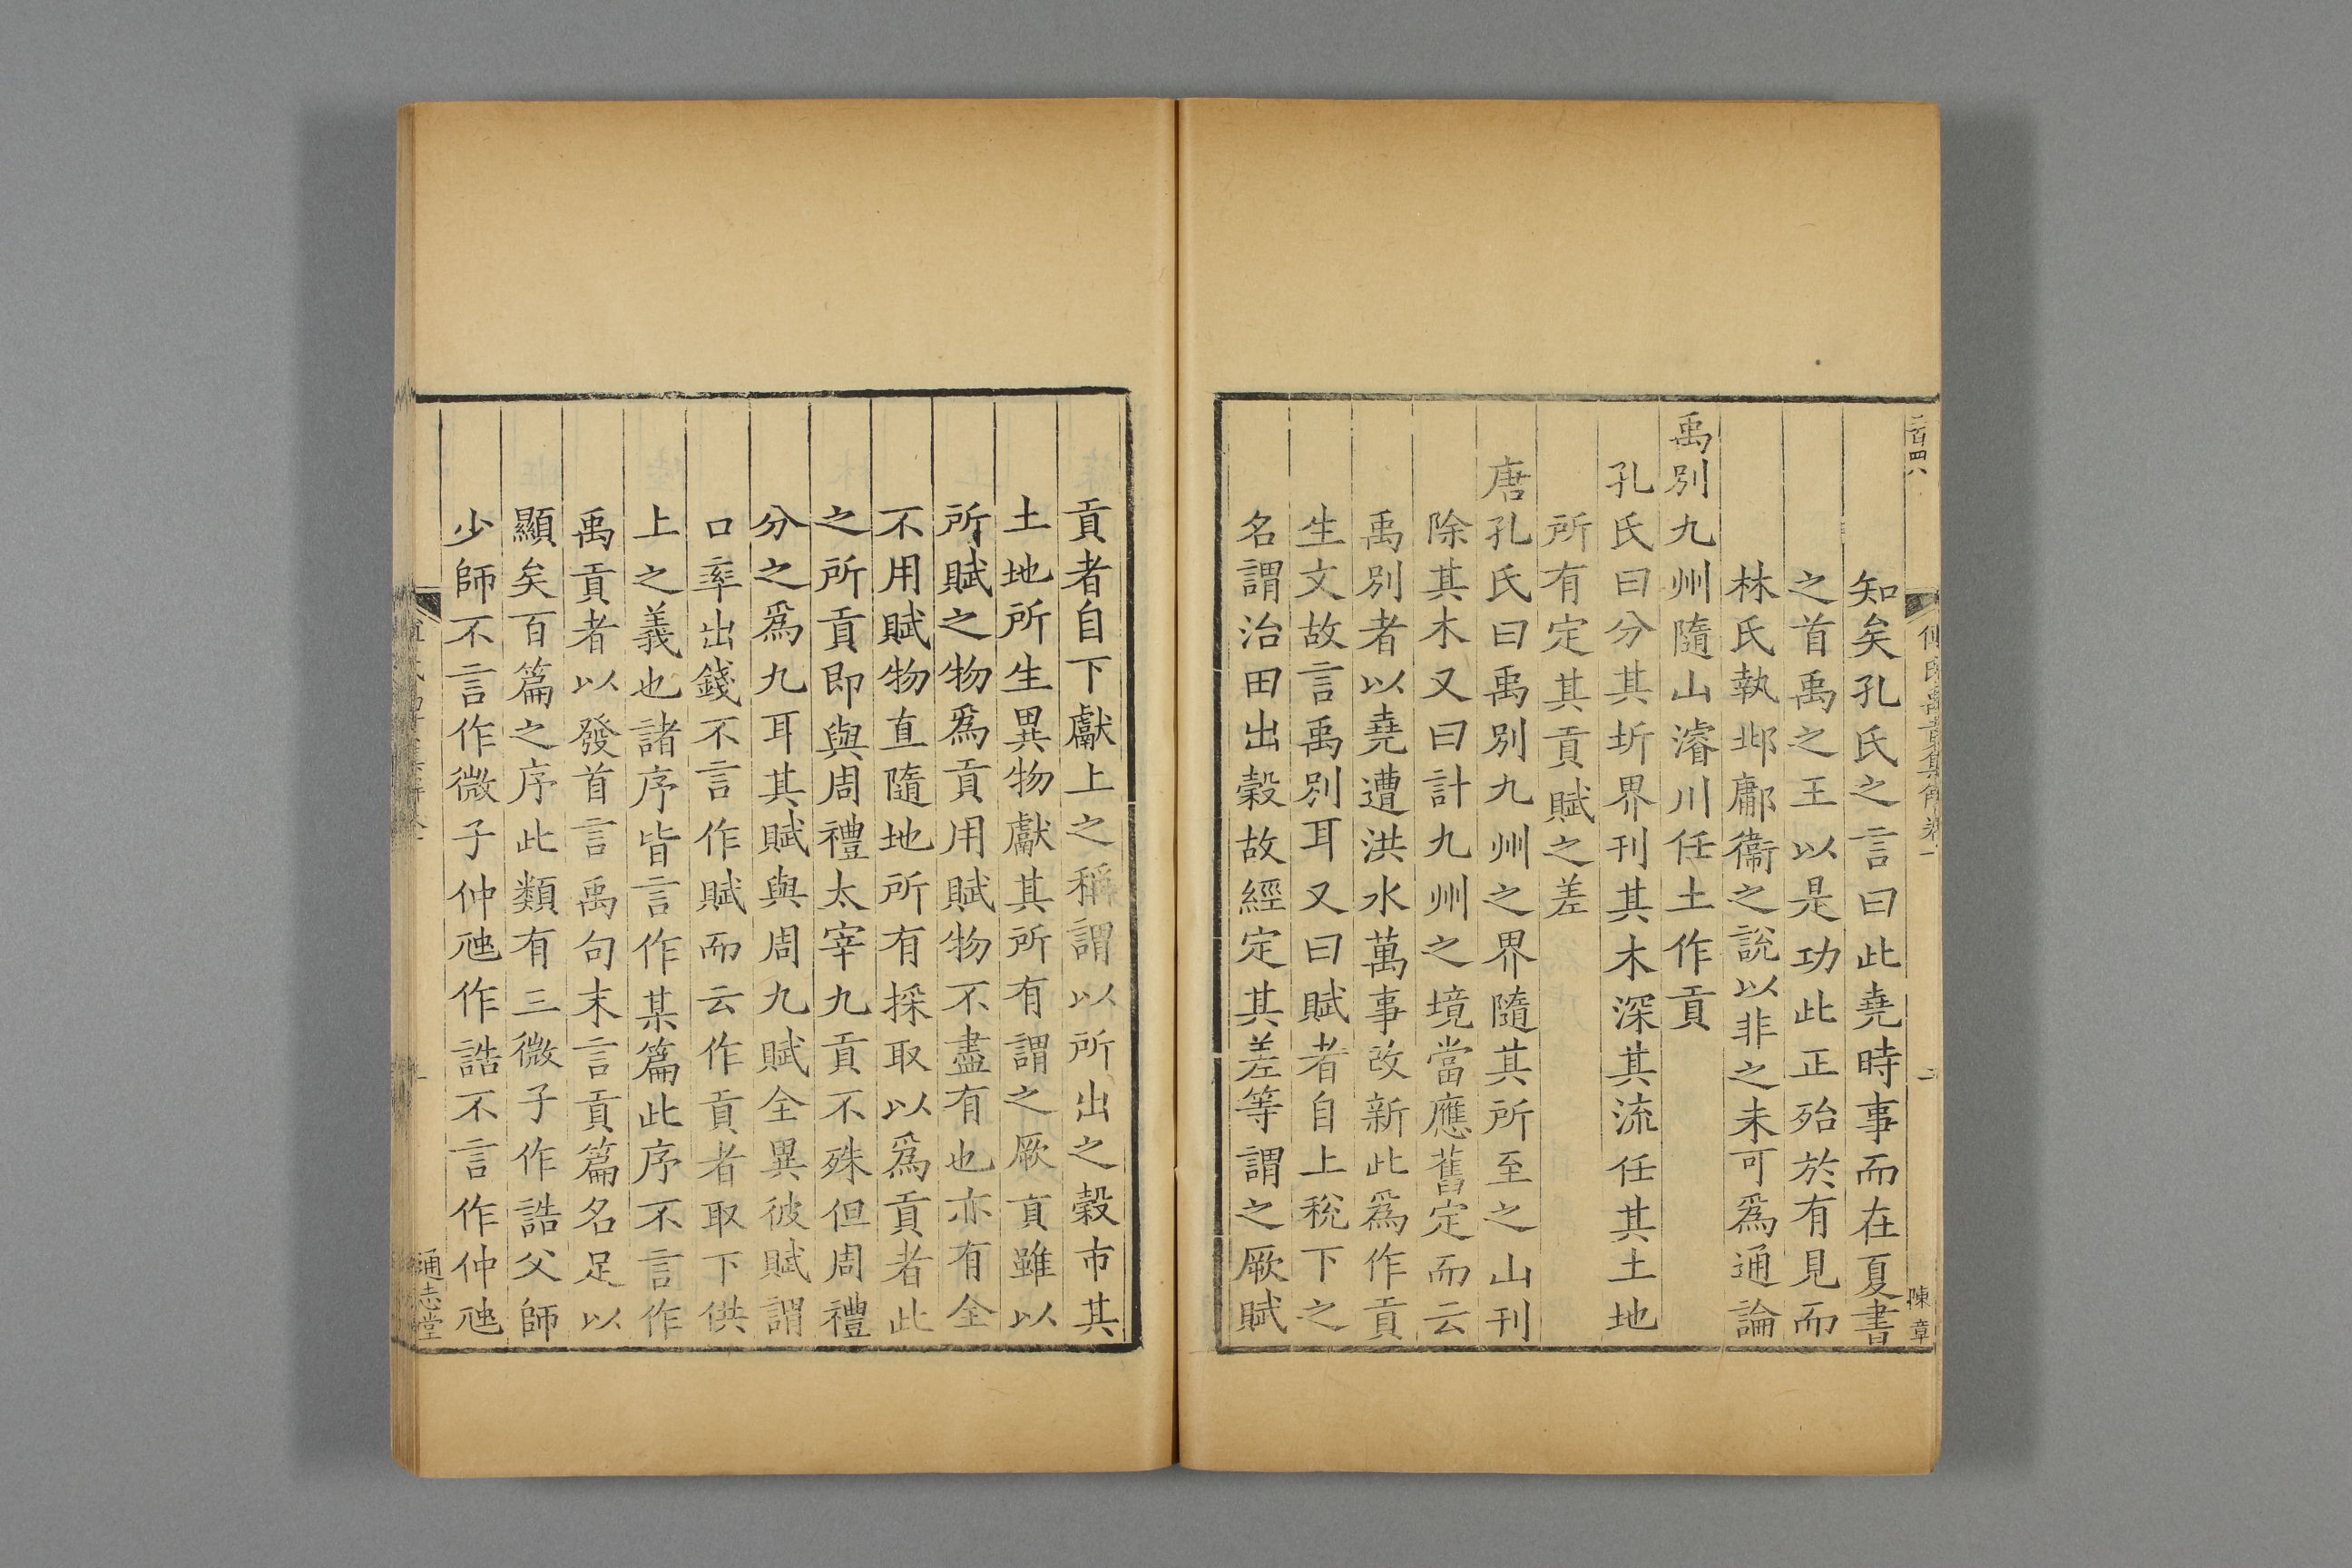 二百四八
傅氏禹貢集解卷一
二
陳章
知矣孔氏之言曰此堯時事而在夏書
之首禹之王以是功此正殆於有見而
林氏執邶鄘衞之說以非之未可爲通論
禹別九州隨山濬川任土作貢
孔氏曰分其圻界刊其木深其流任其土地
所有定其貢賦之差
唐孔氏曰禹別九州之界隨其所至之山刊
除其木又曰計九州之境當應舊定而云
禹別者以堯遭洪水萬事改新此爲作貢
生文故言禹別耳又曰賦者自上稅下之
名謂治田出穀故經定其差等謂之厥賦
貢者自下獻上之稱謂以所出之穀市其
土地所生異物獻其所有謂之厥貢雖以
所賦之物爲貢用賦物不盡有也亦有全
不用賦物直隨地所有採取以爲貢者此
之所貢即與周禮太宰九貢不殊但周禮
分之爲九耳其賦與周九賦全異彼賦謂
口率出錢不言作賦而云作貢者取下供
上之義也諸序皆言作某篇此序不言作
禹貢者以發首言禹句末言貢篇名足以
顯矣百篇之序此類有三微子作誥父師
少師不言作微子仲虺作誥不言作仲虺
通志堂